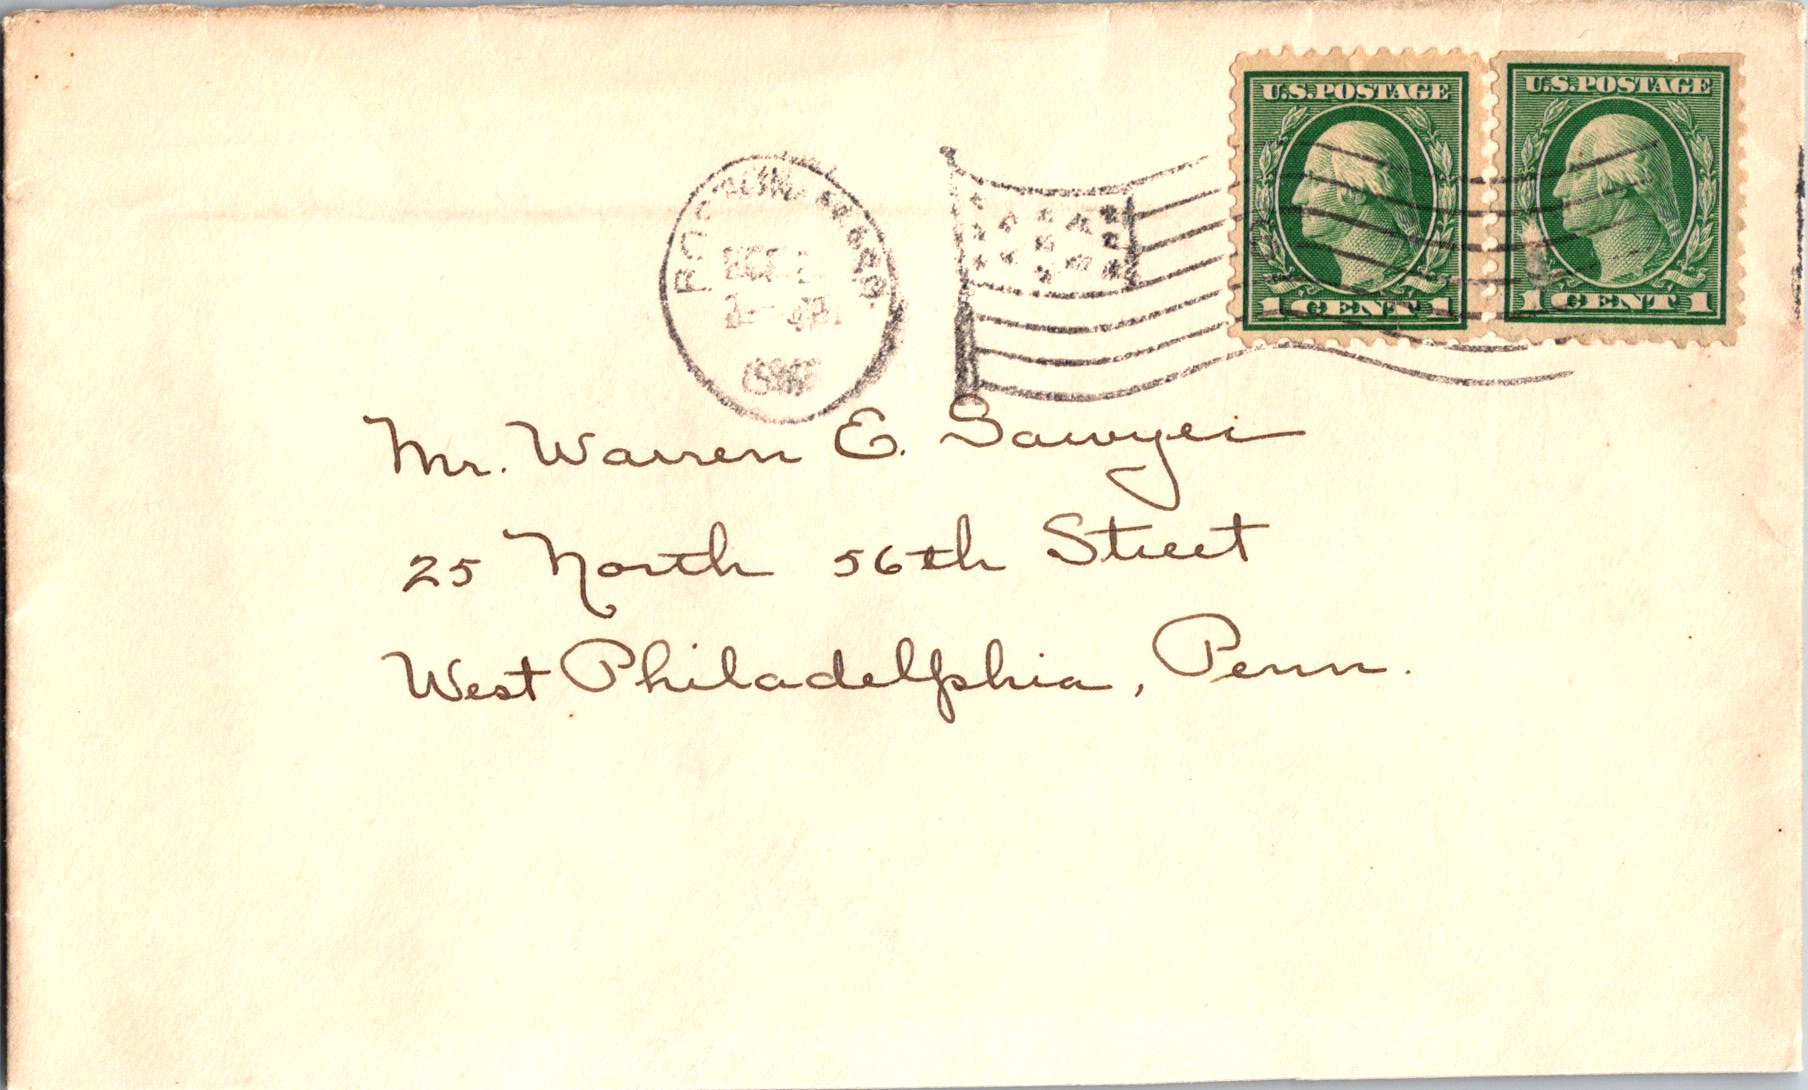 U.S.POSTAGE
1 CENT 1
U.S.POSTAGE
1 CENT 1
Mr. Warren E. Sawyer
25 North 56th Street
West Philadelphia, Penn.